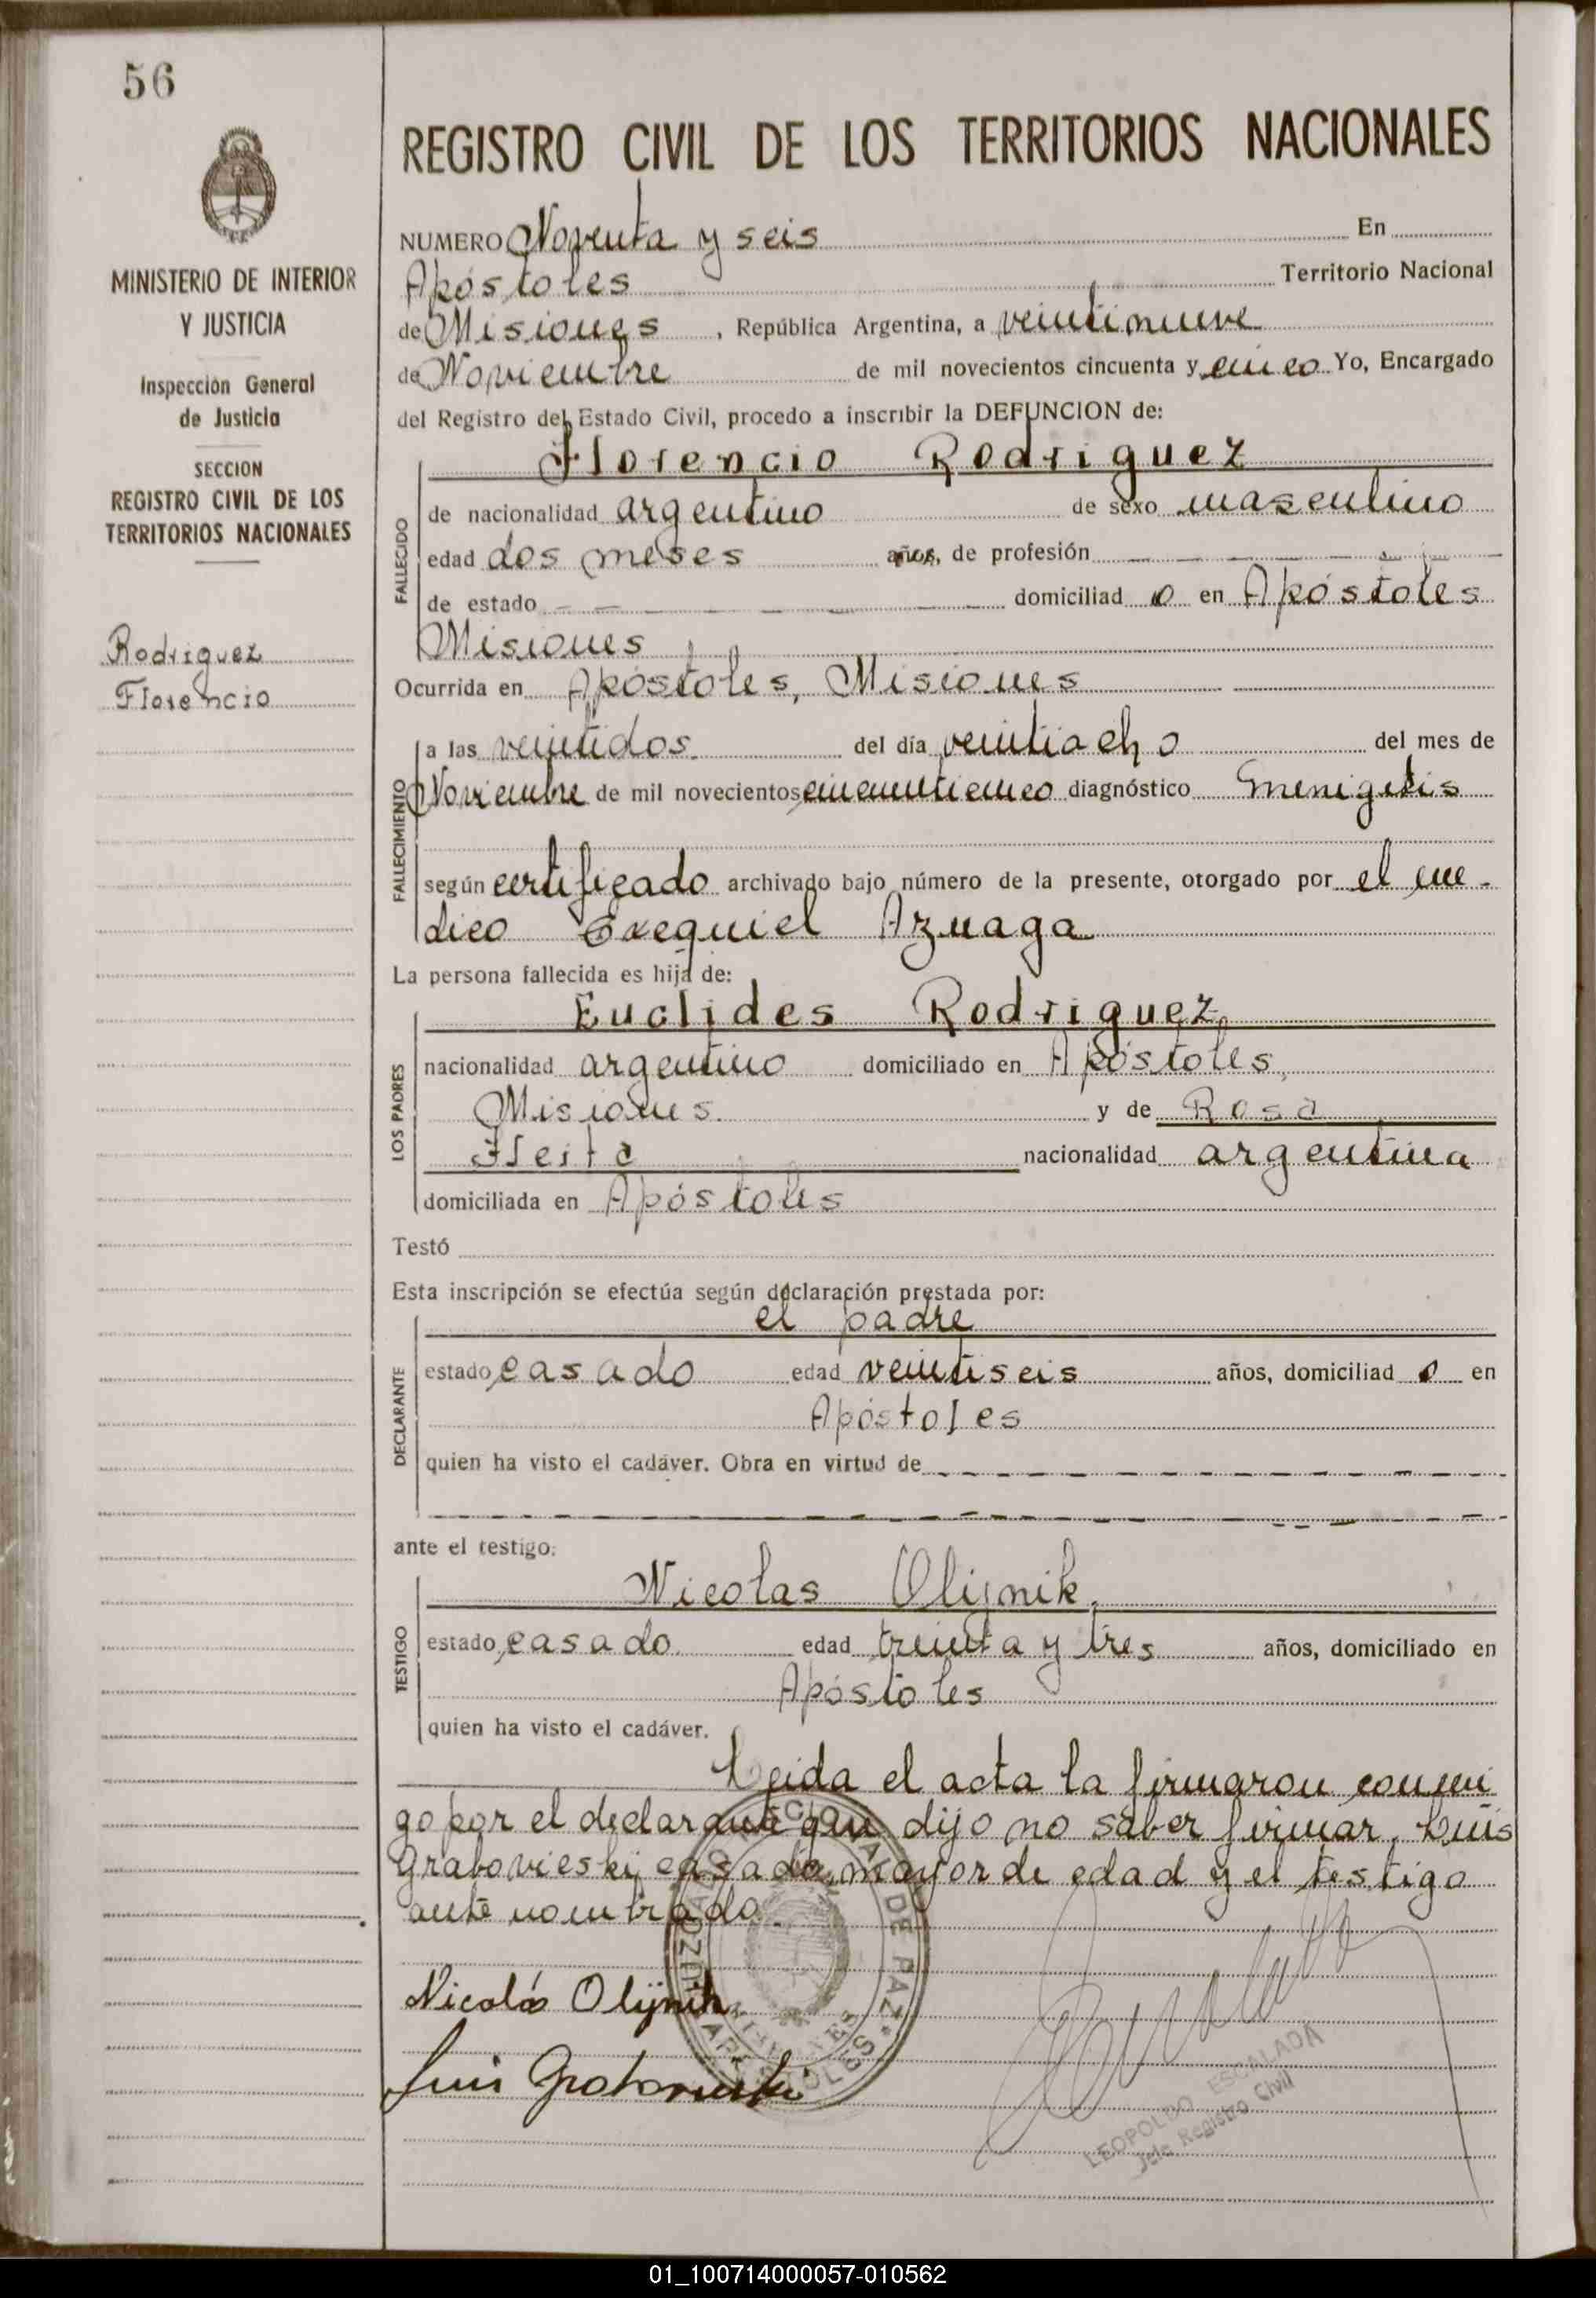 56
MINISTERIO DE INTERIOR
Y JUSTICIA
Inspección General
de Justicia
SECCION
REGISTRO CIVIL DE LOS
TERRITORIOS NACIONALES
Rodriguez
Florencio
REGISTRO CIVIL DE LOS TERRITORIOS NACIONALES
NUMERO Noventa y seis En
Apóstoles Territorio Nacional
de Misiones, República Argentina, a veintinueve
de Noviembre de mil novecientos cincuenta y cinco Yo, Encargado
del Registro del Estado Civil, procedo a inscribir la DEFUNCION de:
Florencio Rodriguez
FALLECIDO
de nacionalidad argentino de sexo masculino
edad dos meses años, de profesión
de estado domiciliad o en Apóstoles
Misiones
Ocurrida en Apóstoles, Misiones
FALLECIMIENTO
a las veintidos del día veintiocho del mes de
Noviembre de mil novecientos cincuenticinco diagnóstico menigitis
según certificado archivado bajo número de la presente, otorgado por el me-
dico Exequiel Azuaga
La persona fallecida es hija de:
Euclides Rodriguez,
LOS PADRES
nacionalidad argentino domiciliado en Apóstoles,
Misiones. y de Rosa
Fleita nacionalidad argentina
domiciliada en Apóstoles
Testó
Esta inscripción se efectúa según declaración prestada por:
el padre
DECLARANTE
estado casado edad veintiseis años, domiciliad o en
Apóstoles
quien ha visto el cadáver. Obra en virtud de
ante el testigo:
Nicolas Olijnik,
TESTIGO
estado casado edad treinta y tres años, domiciliado en
Apóstoles
quien ha visto el cadáver.
Leida el acta la firmaron conmi
go por el declarante que dijo no saber firmar, Luis
Grabovieski, casado, mayor de edad y el testigo
ante nombrado.
Nicolás Olijnik
Luis Grabovieski
DE PAZ
LEOPOLDO ESCALADA
Jefe Registro Civil
01_100714000057-010562